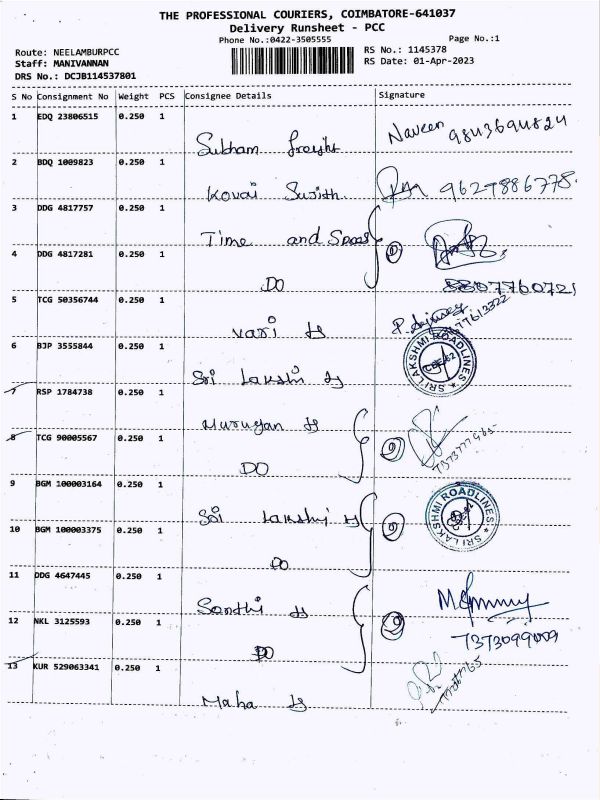 THE PROFESSIONAL COURIERS, COIMBATORE-641037
Delivery Runsheet - PCC
Phone No.:0422-3505555
Page No.:1
Route: NEELAMBURPCC
RS No.: 1145378
Staff: MANIVANNAN
RS Date: 01-Apr-2023
DRS No.: DCJB114537801
S No Consignment No Weight PCS Consignee Details Signature
1 EDQ 23806515 0.250 1
Subham freight Naveen 9843694824
2 BDQ 1009823 0.250 1
Kovai Surith. 9629886778.
3 DDG 4817757 0.250 1
Time and Space
4 DDG 4817281 0.250 1
DO 8807760721
5 TCG 50356744 0.250 1
vari
6 BJP 3555844 0.250 1
Sri Lakshi SRI LAKSHMI ROADLINES
7 RSP 1784738 0.250 1
Murugan
8 TCG 90005567 0.250 1
DO
9 BGM 100003164 0.250 1
Sri Lakshmi SRI LAKSHMI ROADLINES
10 BGM 100003375 0.250 1
DO
11 DDG 4647445 0.250 1
Santhi
12 NKL 3125593 0.250 1
DO 7373099009
13 KUR 529063341 0.250 1
Maha